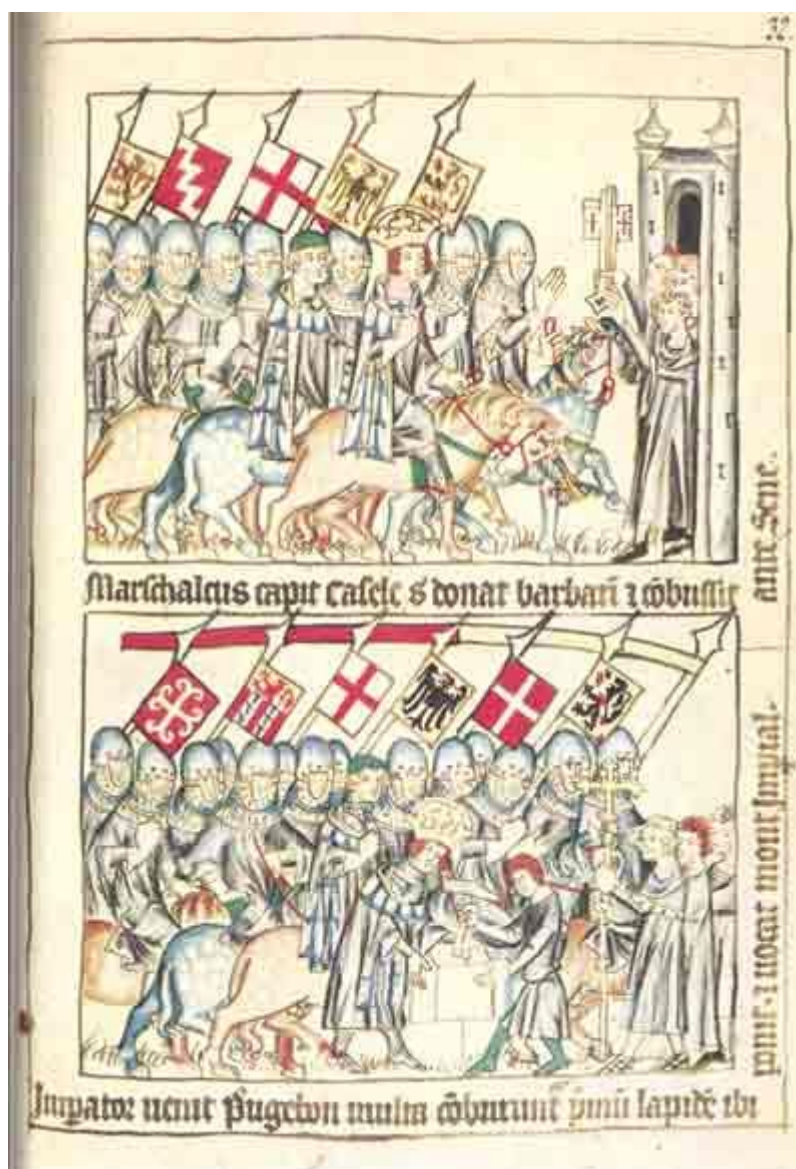 32.
Marschalcus capit Casele s̄ donat barbari᷑ ⁊ cōbussit
ante Sene.
Imꝑator uenit Pugebon multa cōburunt᷑ ṗmū lapidē ibi
ponit. ⁊ uocat mont Imꝑial.